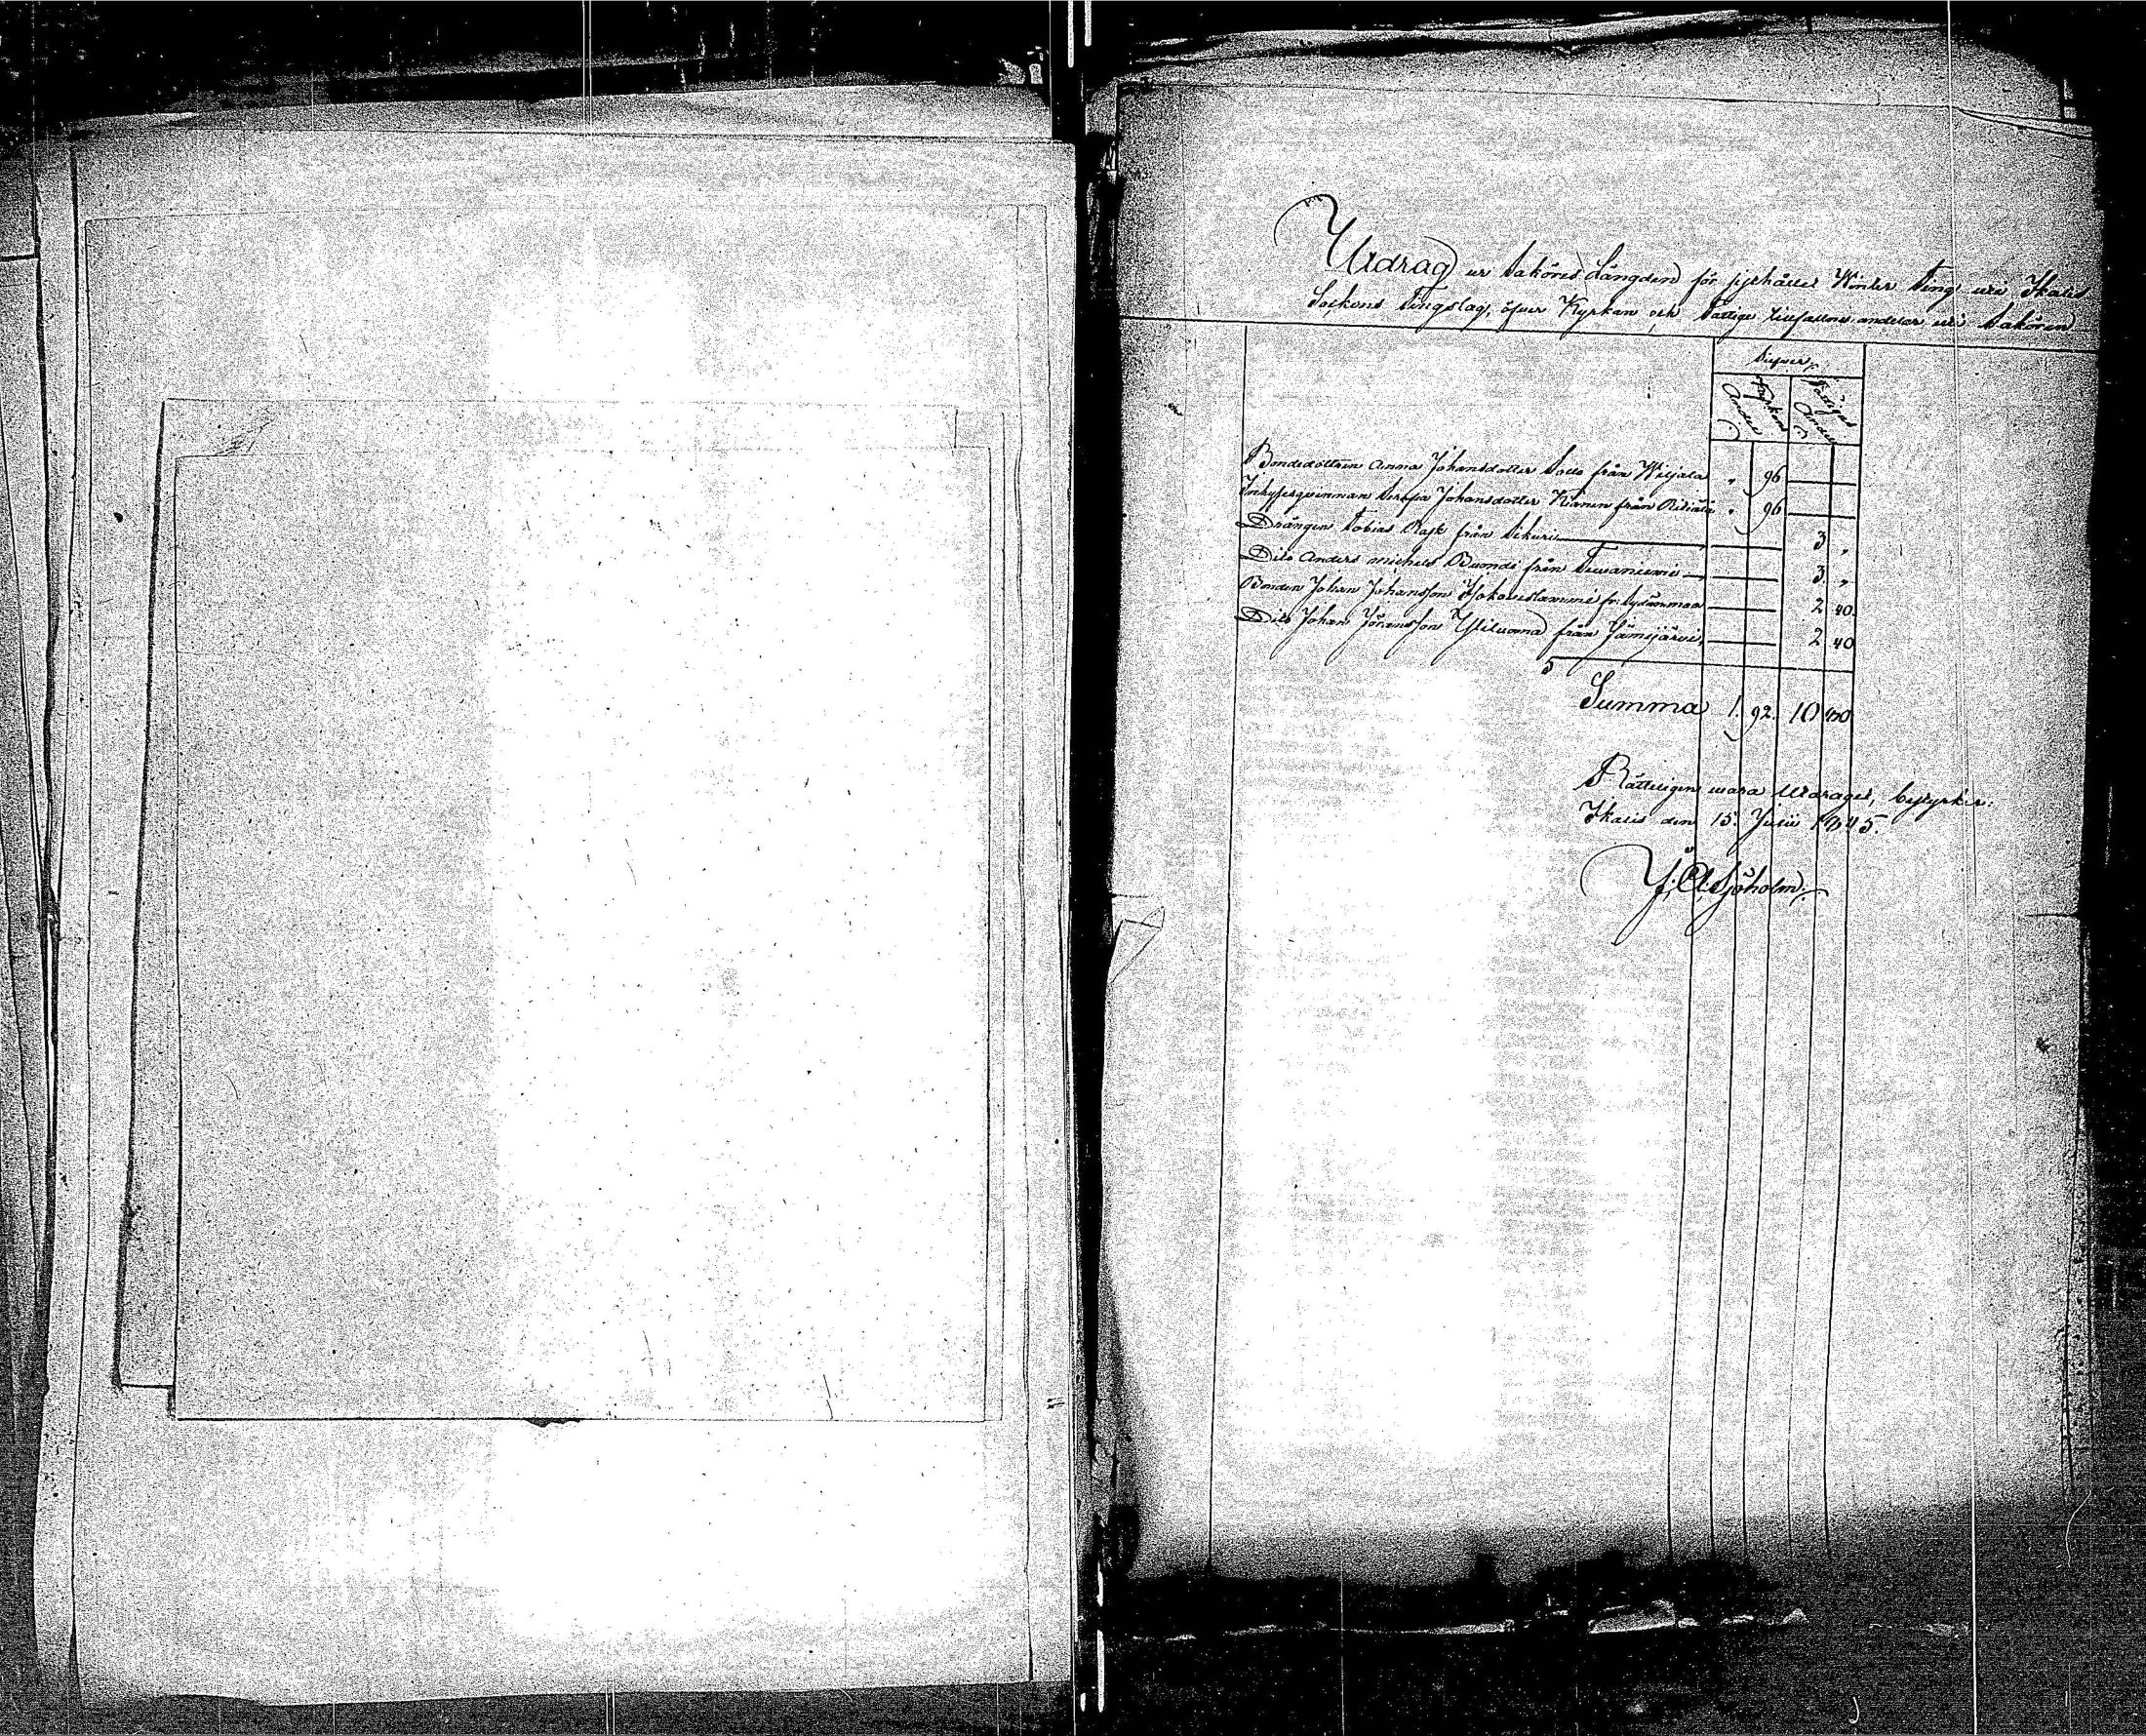 Utdrag ur Saköres Längden för sjelhållet Winter Ting uti Ikalis
Sockens Tingslag, öfver Kyrkan och Fattige tillfallne andelar uti Sakören
Silfver
Kyrkans Andel
Fattigas Andel
Bondedottren Anna Johansdotter Sotto från Wiljala „ 96
Inhysesqvinnan Serafia Johansdotter Kianen från Ridiala „ 96
Drängen Tobias Rask från Sikuri 3 „
Dito Anders Michels Buonde från Tevaniemi 3. „
Bonden Johan Johansson fr: Sydänmaa 2 40.
Dito Johan Johansson Yliluoma från Jämijärvi, 2 40
5
Summa 1. 92. 10 40
Rätteligen vara Utdraget, bestyrker:
Ikalis den 15. Julii 1845.
J: A: Sjöholm.